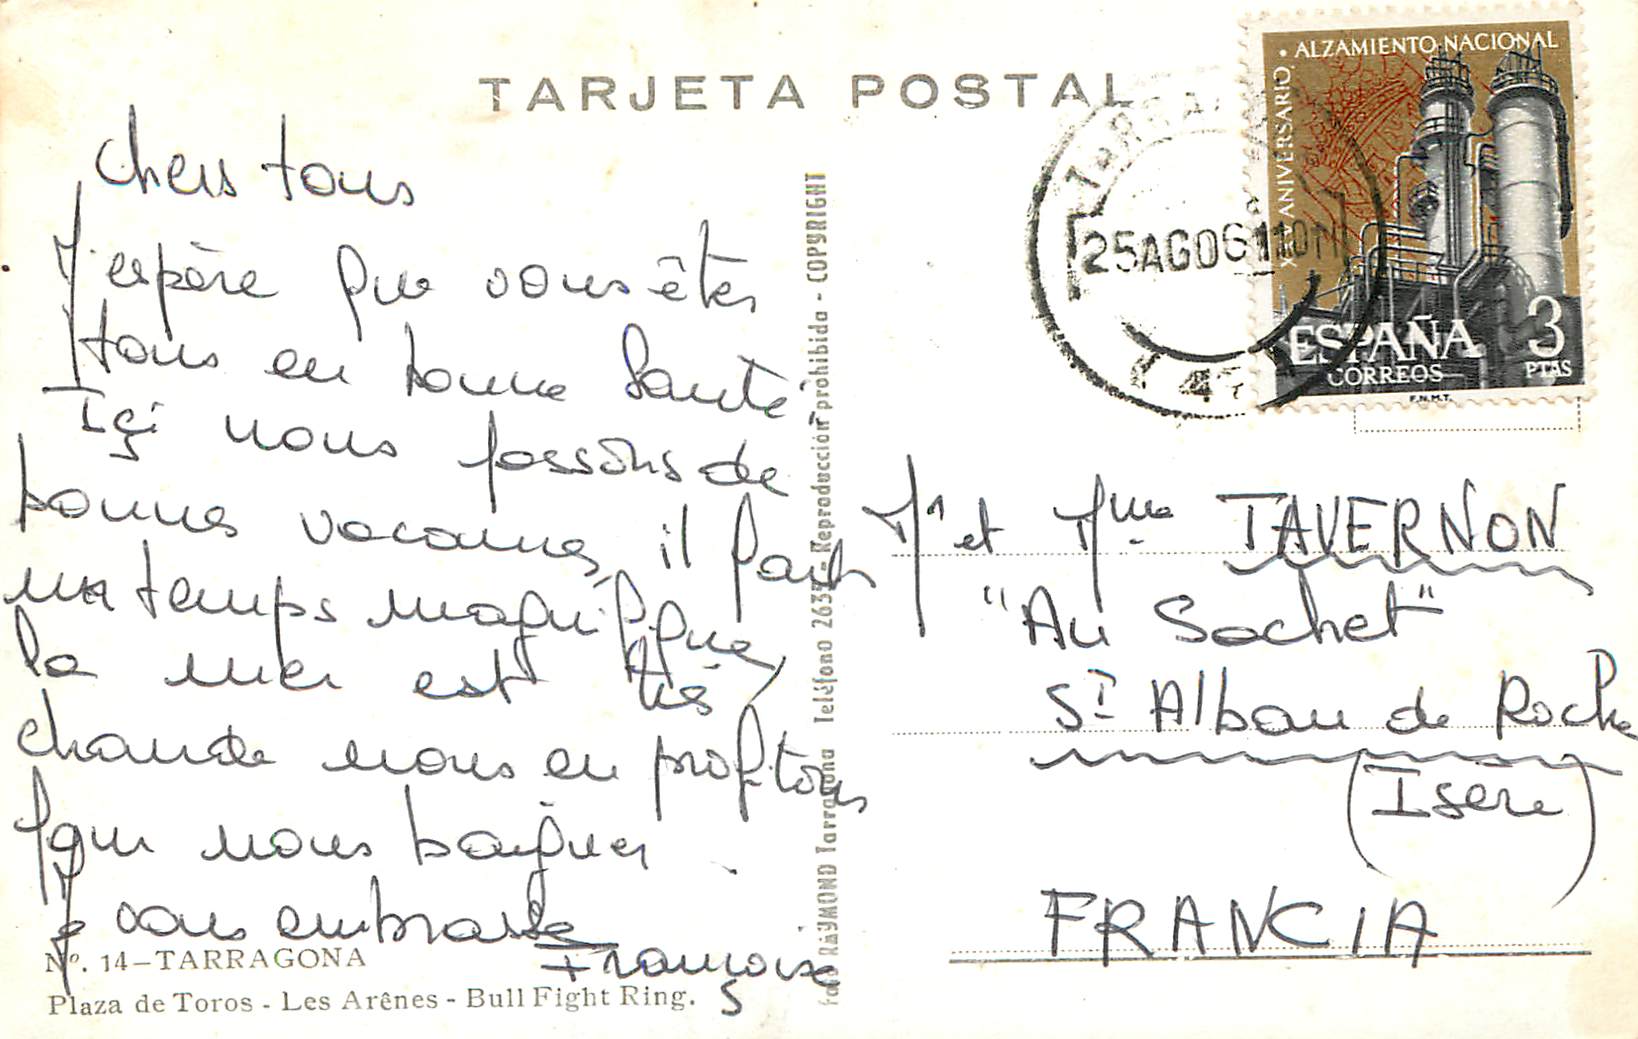 TARJETA POSTAL
Chers tous
J'espère que vous êtes
tous en bonne Santé
Içi nous passons de
bonnes vacances, il fait
un temps magnifique,
la mer est très
chaude nous en profitons
pour nous baigner.
Je vous embrasse
Françoise
Nº. 14-TARRAGONA
Plaza de Toros - Les Arênes - Bull Fight Ring.
Foto RAYMOND Tarragona Teléfono 2635 - Reproducción prohibida - COPYRIGHT
TARRA
25 AGO 61 10N
XXV ANIVERSARIO · ALZAMIENTO NACIONAL
ESPAÑA
CORREOS
3
PTAS
F.N.M.T.
Mr et Mme TAVERNON
"Au Sachet"
St Alban de Roche
(Isère)
FRANCIA